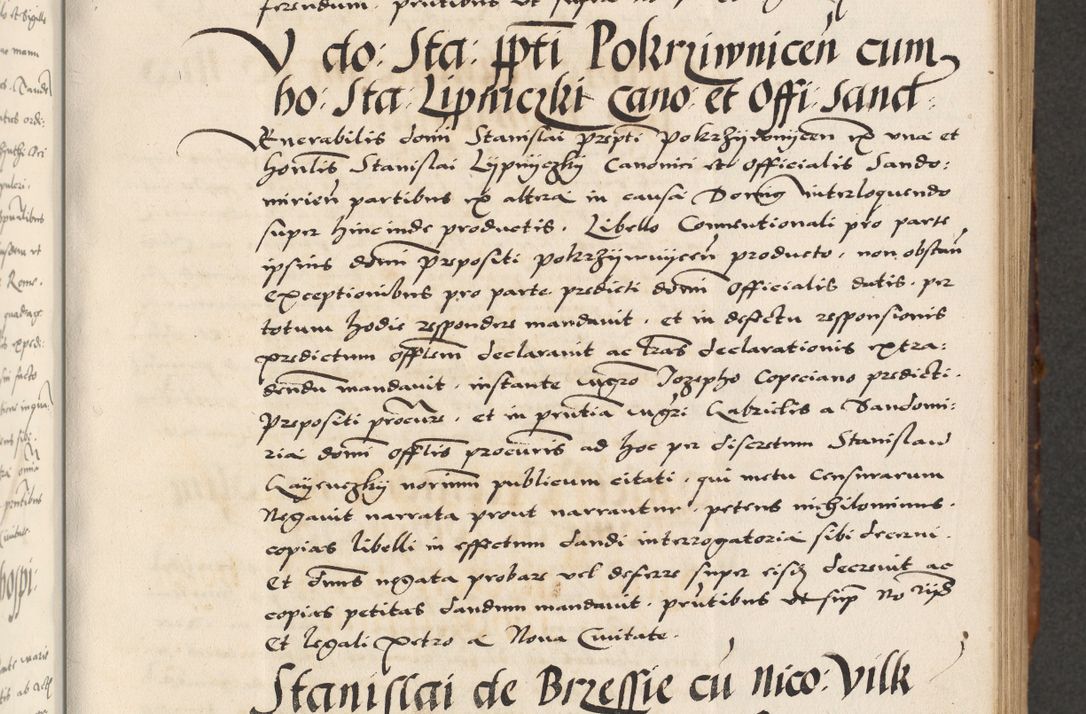 ferendum. pntibus ut supra
V do: Sta: ppti Pokrziwniceń cum
ho: Sta: Lipniczki Cano: et Offi: Sand:
Venerabilis domi Stanislai prepti Pokrzywnycen ex vna et
honlis Stanislai Lypnyczky Canonici et Officialis Sando:
mirień partibus ex altera in causa Dominus interloquendo
super hincinde productis. Libello Conuentionali pro parte
ipsius domi Prepositi Pokrzywnyceń producto, non obstań
exceptionibus pro parte predicti domi Officialis datis, per
totum hodie respondere mandauit, et in defectu responsionis
predictum offlem declarauit ac lras declarationis extra:
dendu mandauit, instante mgro Jozepho Copeciano predicti
Prepositi procure, et in pntia mgri Gabrielis a Sandomi:
ria domi offlis procuris ad hoc per discretum Stanislau
Gayewzky notrium publicum citati, qui metu censurarum
Negauit narrata prout narrantur, petens nihilominus
copias libelli in effectum dandi interrogatoria sibi decerni.
Et dnus negata probare vel deferre super eisdem decreuit ac
copias petitas dandum mandauit, pntibus ut sup No
Et legali Petro a Noua Ciuitate.
Stanislai de Brzessie cu nico: Vilk